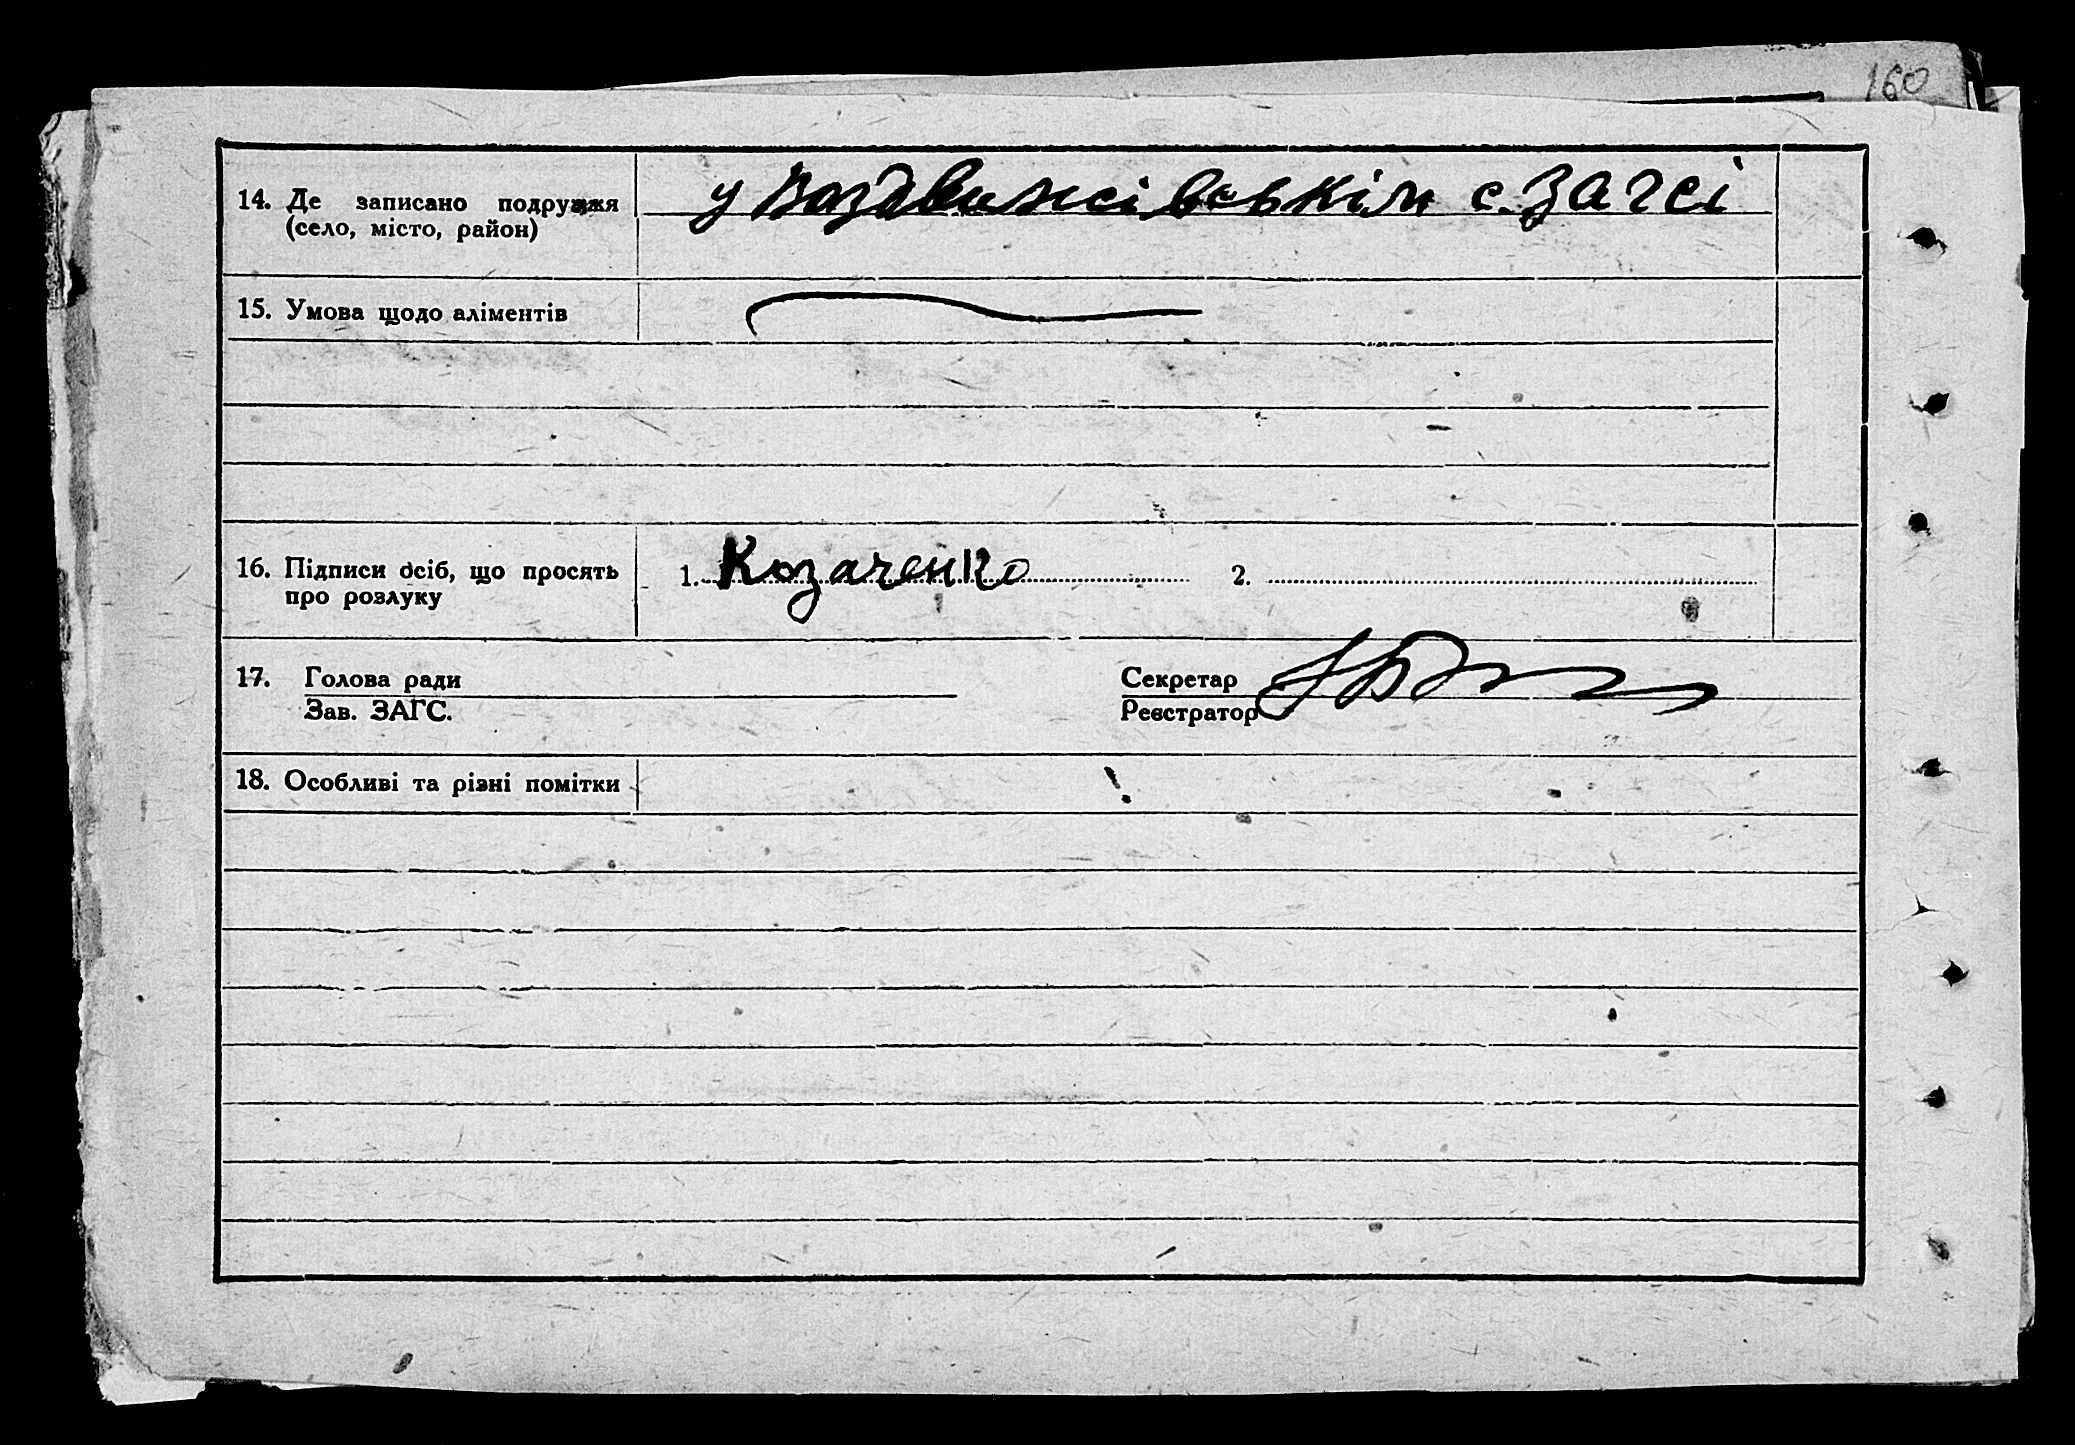 160
14. Де записано подружжя у Воздвижсівськім с. ЗАГСі
(село, місто, район)
15. Умова щодо аліментів
16. Підписи осіб, що просять 1. Козаченко 2.
про розлуку
17. Голова ради Секретар
Зав. ЗАГС. Реєстратор
18. Особливі та різні помітки